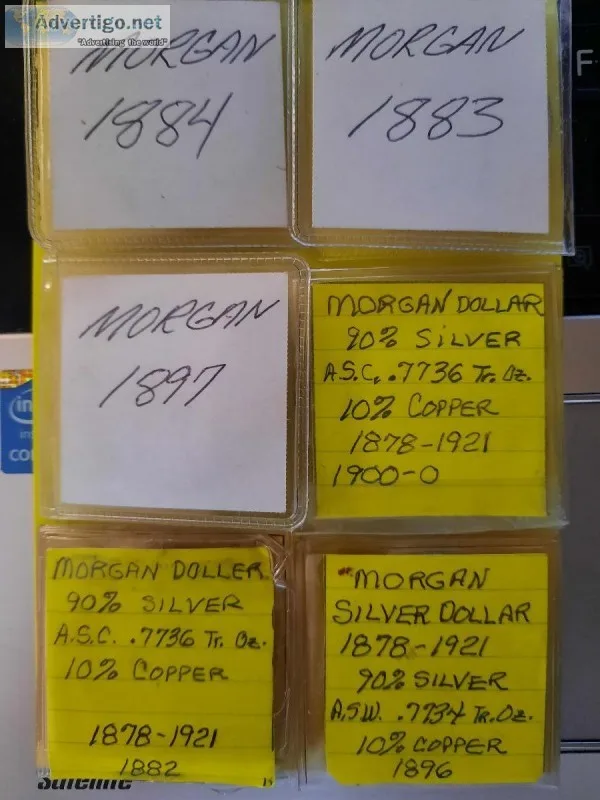 Advertigo.net
"Advertising the world"
MORGAN
1884
MORGAN
1883
F
MORGAN
1897
MORGAN DOLLAR
90% SILVER
A.S.C. .7736 Tr. Oz.
10% COPPER
1878-1921
1900-O
MORGAN DOLLER
90% SILVER
A.S.C. .7736 Tr. Oz.
10% COPPER
1878-1921
1882
MORGAN
SILVER DOLLAR
1878-1921
90% SILVER
A.S.W. .7734 Tr. Oz.
10% COPPER
1896